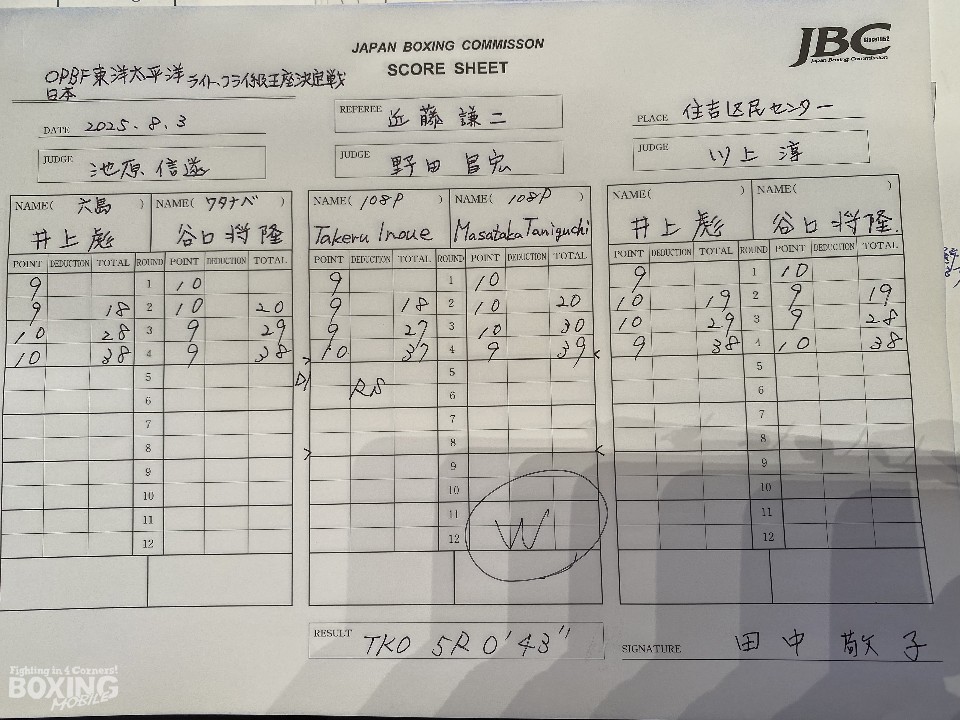 JAPAN BOXING COMMISSON
SCORE SHEET
JBC
Since1952
Japan Boxing Commission
OPBF東洋太平洋
日本
ライト、フライ級王座決定戦
DATE 2025.8.3
REFEREE 近藤謙二
PLACE 住吉区民センター
JUDGE 池原信遂
JUDGE 野田昌宏
JUDGE 川上淳
NAME( 六島 ) NAME( ワタナベ )
井上彪 谷口将隆
POINT DEDUCTION TOTAL ROUND POINT DEDUCTION TOTAL
9 1 10
9 18 2 10 20
10 28 3 9 29
10 38 4 9 38
5
6
7
8
9
10
11
12
NAME( 108P ) NAME( 108P )
Takeru Inoue Masataka Taniguchi
POINT DEDUCTION TOTAL ROUND POINT DEDUCTION TOTAL
9 1 10
9 18 2 10 20
9 27 3 10 30
10 37 4 9 39
5
6
7
8
9
10
11
12
W
NAME( ) NAME( )
井上彪 谷口将隆.
POINT DEDUCTION TOTAL ROUND POINT DEDUCTION TOTAL
9 1 10
10 19 2 9 19
10 29 3 9 28
9 38 4 10 38
5
6
7
8
9
10
11
12
RESULT TKO 5R 0'43"
SIGNATURE 田中敬子
Fighting in 4 Corners!
BOXING
MOBILE